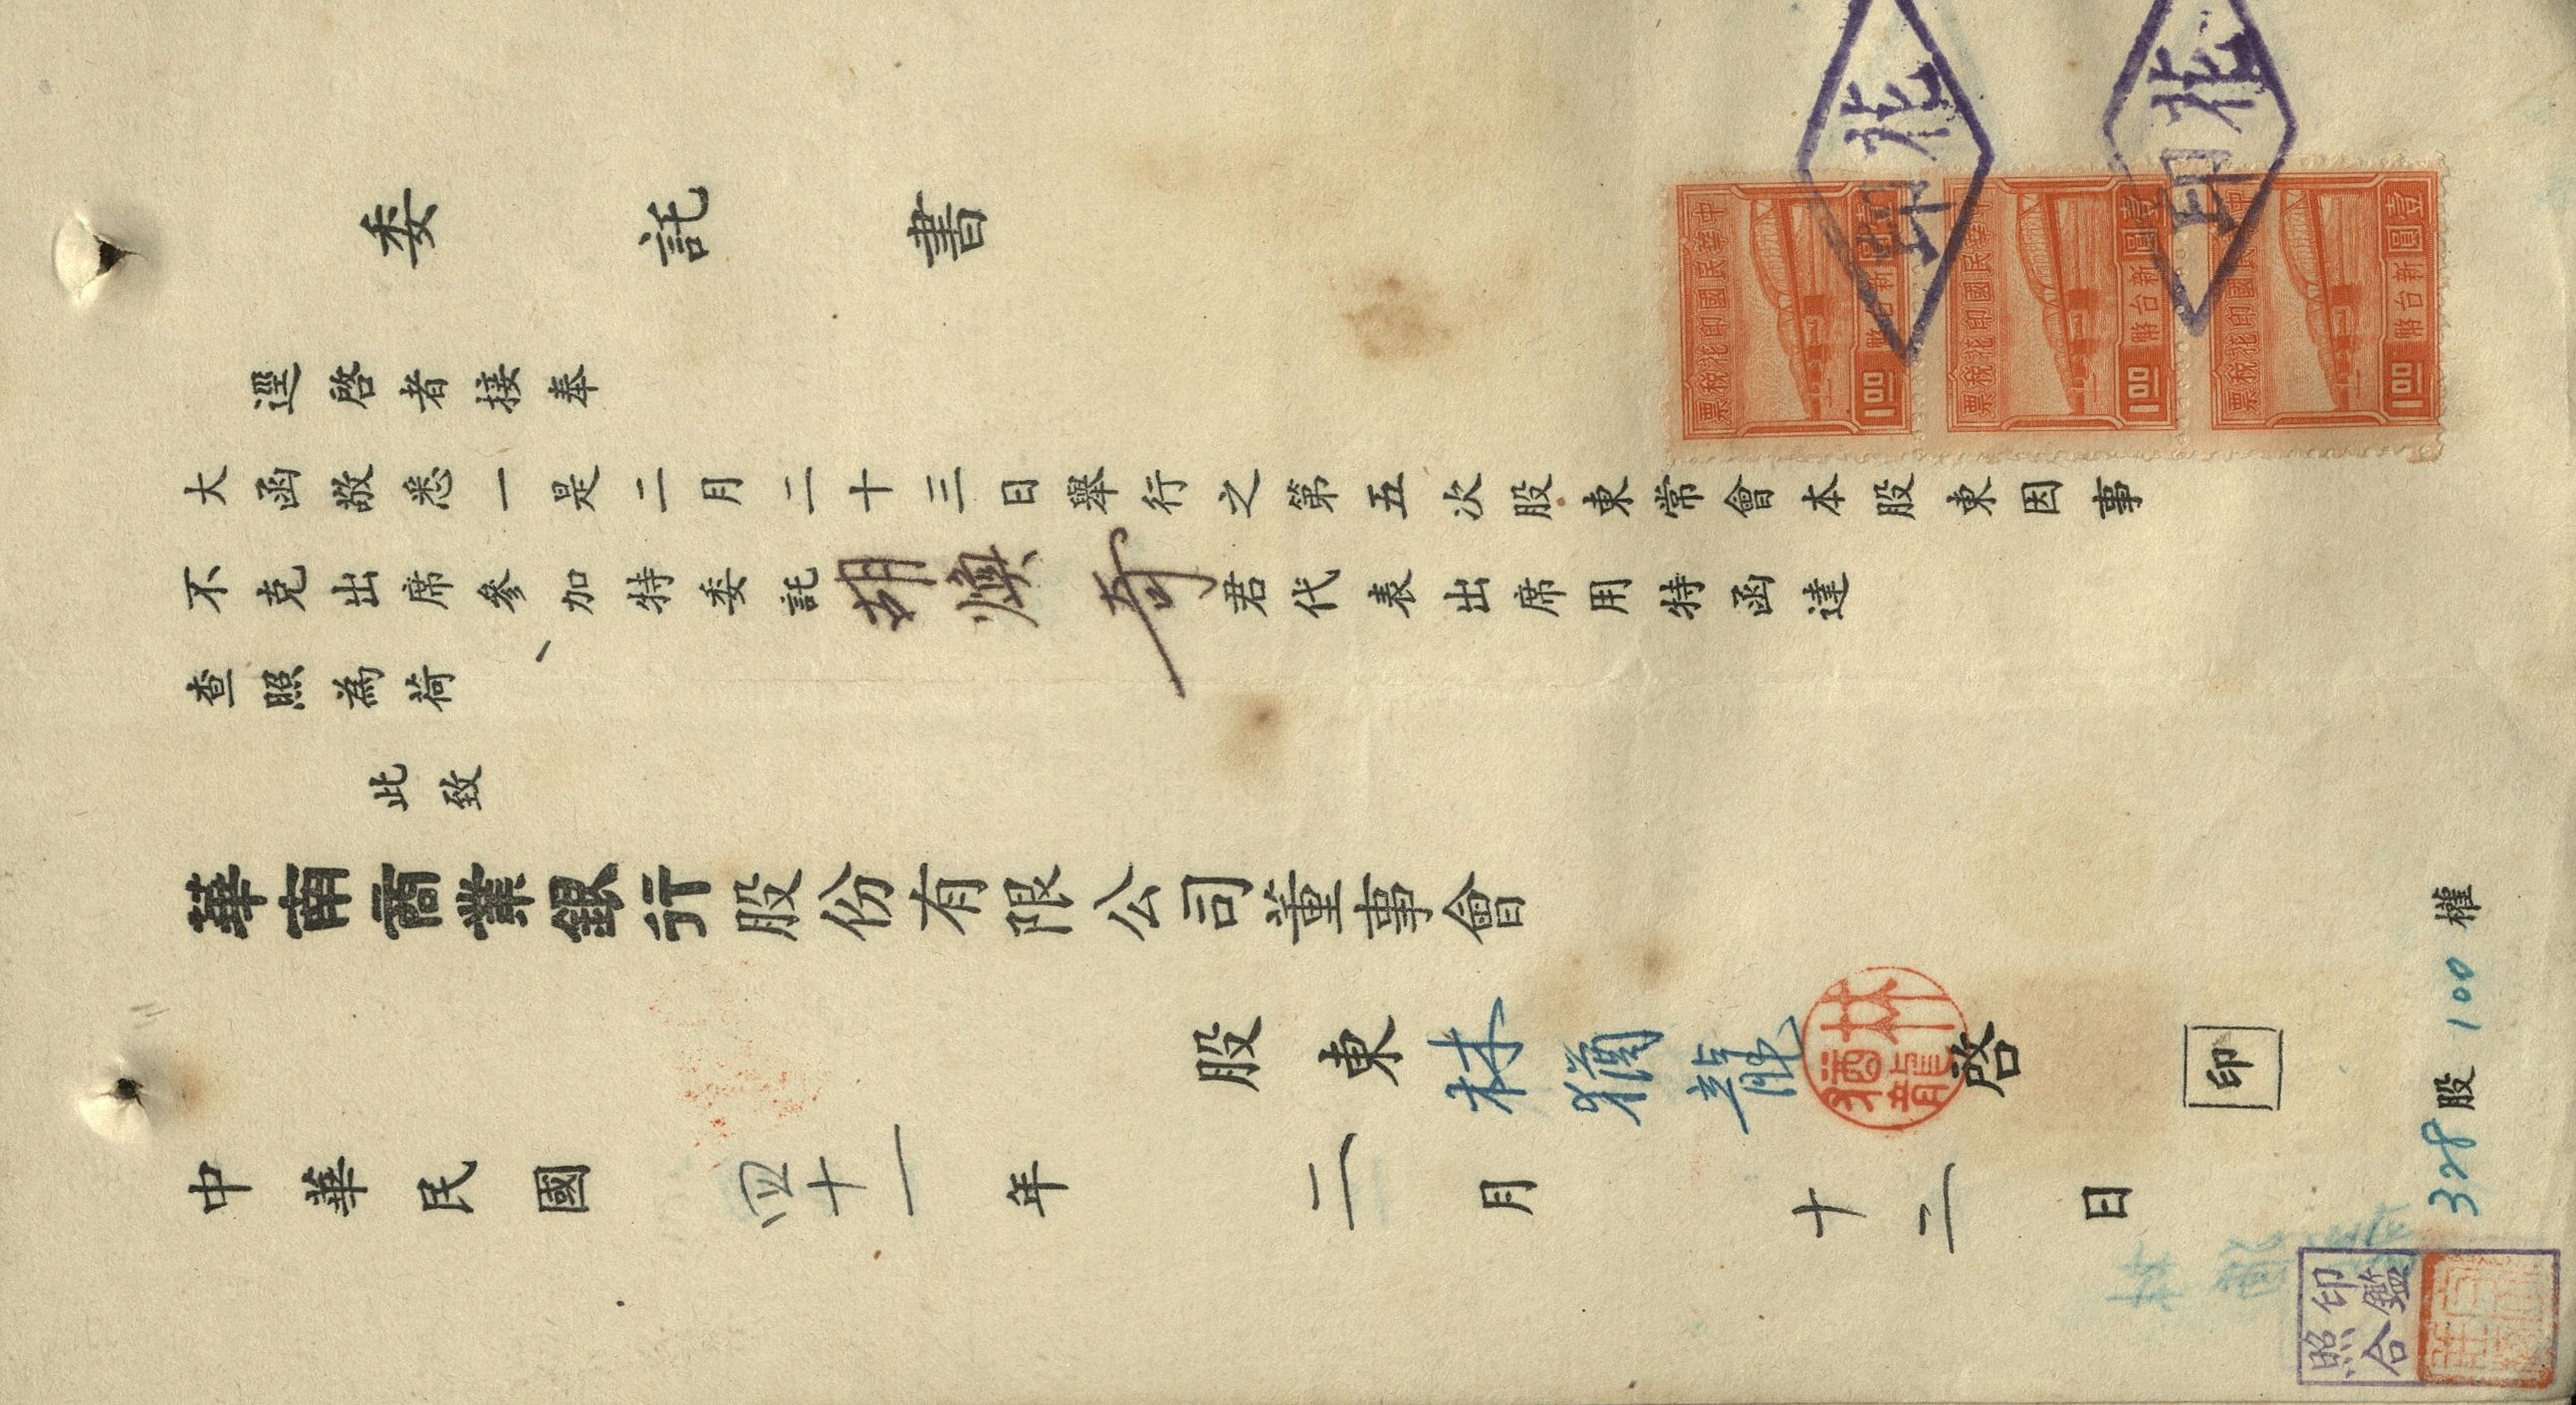 委託書
逕啓者接奉
大函敬悉一是二月二十三日舉行之第五次股東常會本股東因事
不克出席參加特委託胡煥奇君代表出席用特函達
查照為荷
此致
華南商業銀行股份有限公司董事會
股東林猶龍啓 印
林猶龍
中華民國四十一年二月十二日
328股100權
印鑑
照合
中華民國印花稅票
壹圓
新台幣
1.00
中華民國印花稅票
壹圓
新台幣
1.00
中華民國印花稅票
壹圓
新台幣
1.00
印花
印花